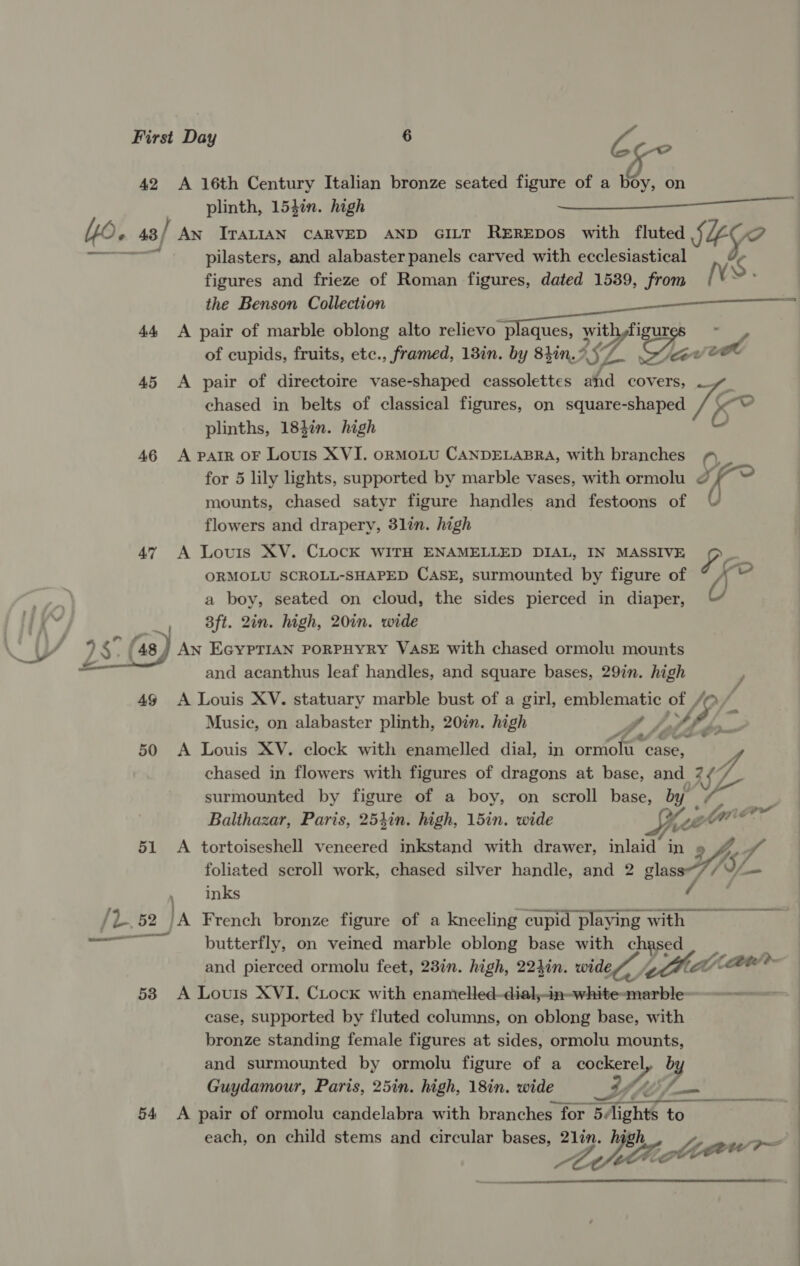 First Day 6
42 A 16th Century Italian bronze seated figure of a boy, on
plinth, 15½in. high
40. 43/ AN ITALIAN CARVED AND GILT REREDOS with fluted
pilasters, and alabaster panels carved with ecclesiastical
figures and frieze of Roman figures, dated 1539, from
the Benson Collection
44 A pair of marble oblong alto relievo plaques, with figures
of cupids, fruits, etc., framed, 13in. by 8½in.
45 A pair of directoire vase-shaped cassolettes and covers,
chased in belts of classical figures, on square-shaped
plinths, 18½in. high
46 A PAIR OF LOUIS XVI. ORMOLU CANDELABRA, with branches
for 5 lily lights, supported by marble vases, with ormolu
mounts, chased satyr figure handles and festoons of
flowers and drapery, 31in. high
47 A LOUIS XV. CLOCK WITH ENAMELLED DIAL, IN MASSIVE
ORMOLU SCROLL-SHAPED CASE, surmounted by figure of
a boy, seated on cloud, the sides pierced in diaper,
3ft. 2in. high, 20in. wide
48 AN EGYPTIAN PORPHYRY VASE with chased ormolu mounts
and acanthus leaf handles, and square bases, 29in. high
49 A Louis XV. statuary marble bust of a girl, emblematic of
Music, on alabaster plinth, 20in. high
50 A Louis XV. clock with enamelled dial, in ormolu case,
chased in flowers with figures of dragons at base, and
surmounted by figure of a boy, on scroll base, by
Balthazar, Paris, 25½in. high, 15in. wide
51 A tortoiseshell veneered inkstand with drawer, inlaid in
foliated scroll work, chased silver handle, and 2 glass
inks
12. 52 A French bronze figure of a kneeling cupid playing with
butterfly, on veined marble oblong base with chased
and pierced ormolu feet, 23in. high, 22½in. wide
53 A LOUIS XVI. CLOCK with enamelled dial, in white marble
case, supported by fluted columns, on oblong base, with
bronze standing female figures at sides, ormolu mounts,
and surmounted by ormolu figure of a cockerel, by
Guydamour, Paris, 25in. high, 18in. wide
54 A pair of ormolu candelabra with branches for 5 lights to
each, on child stems and circular bases, 21in. high